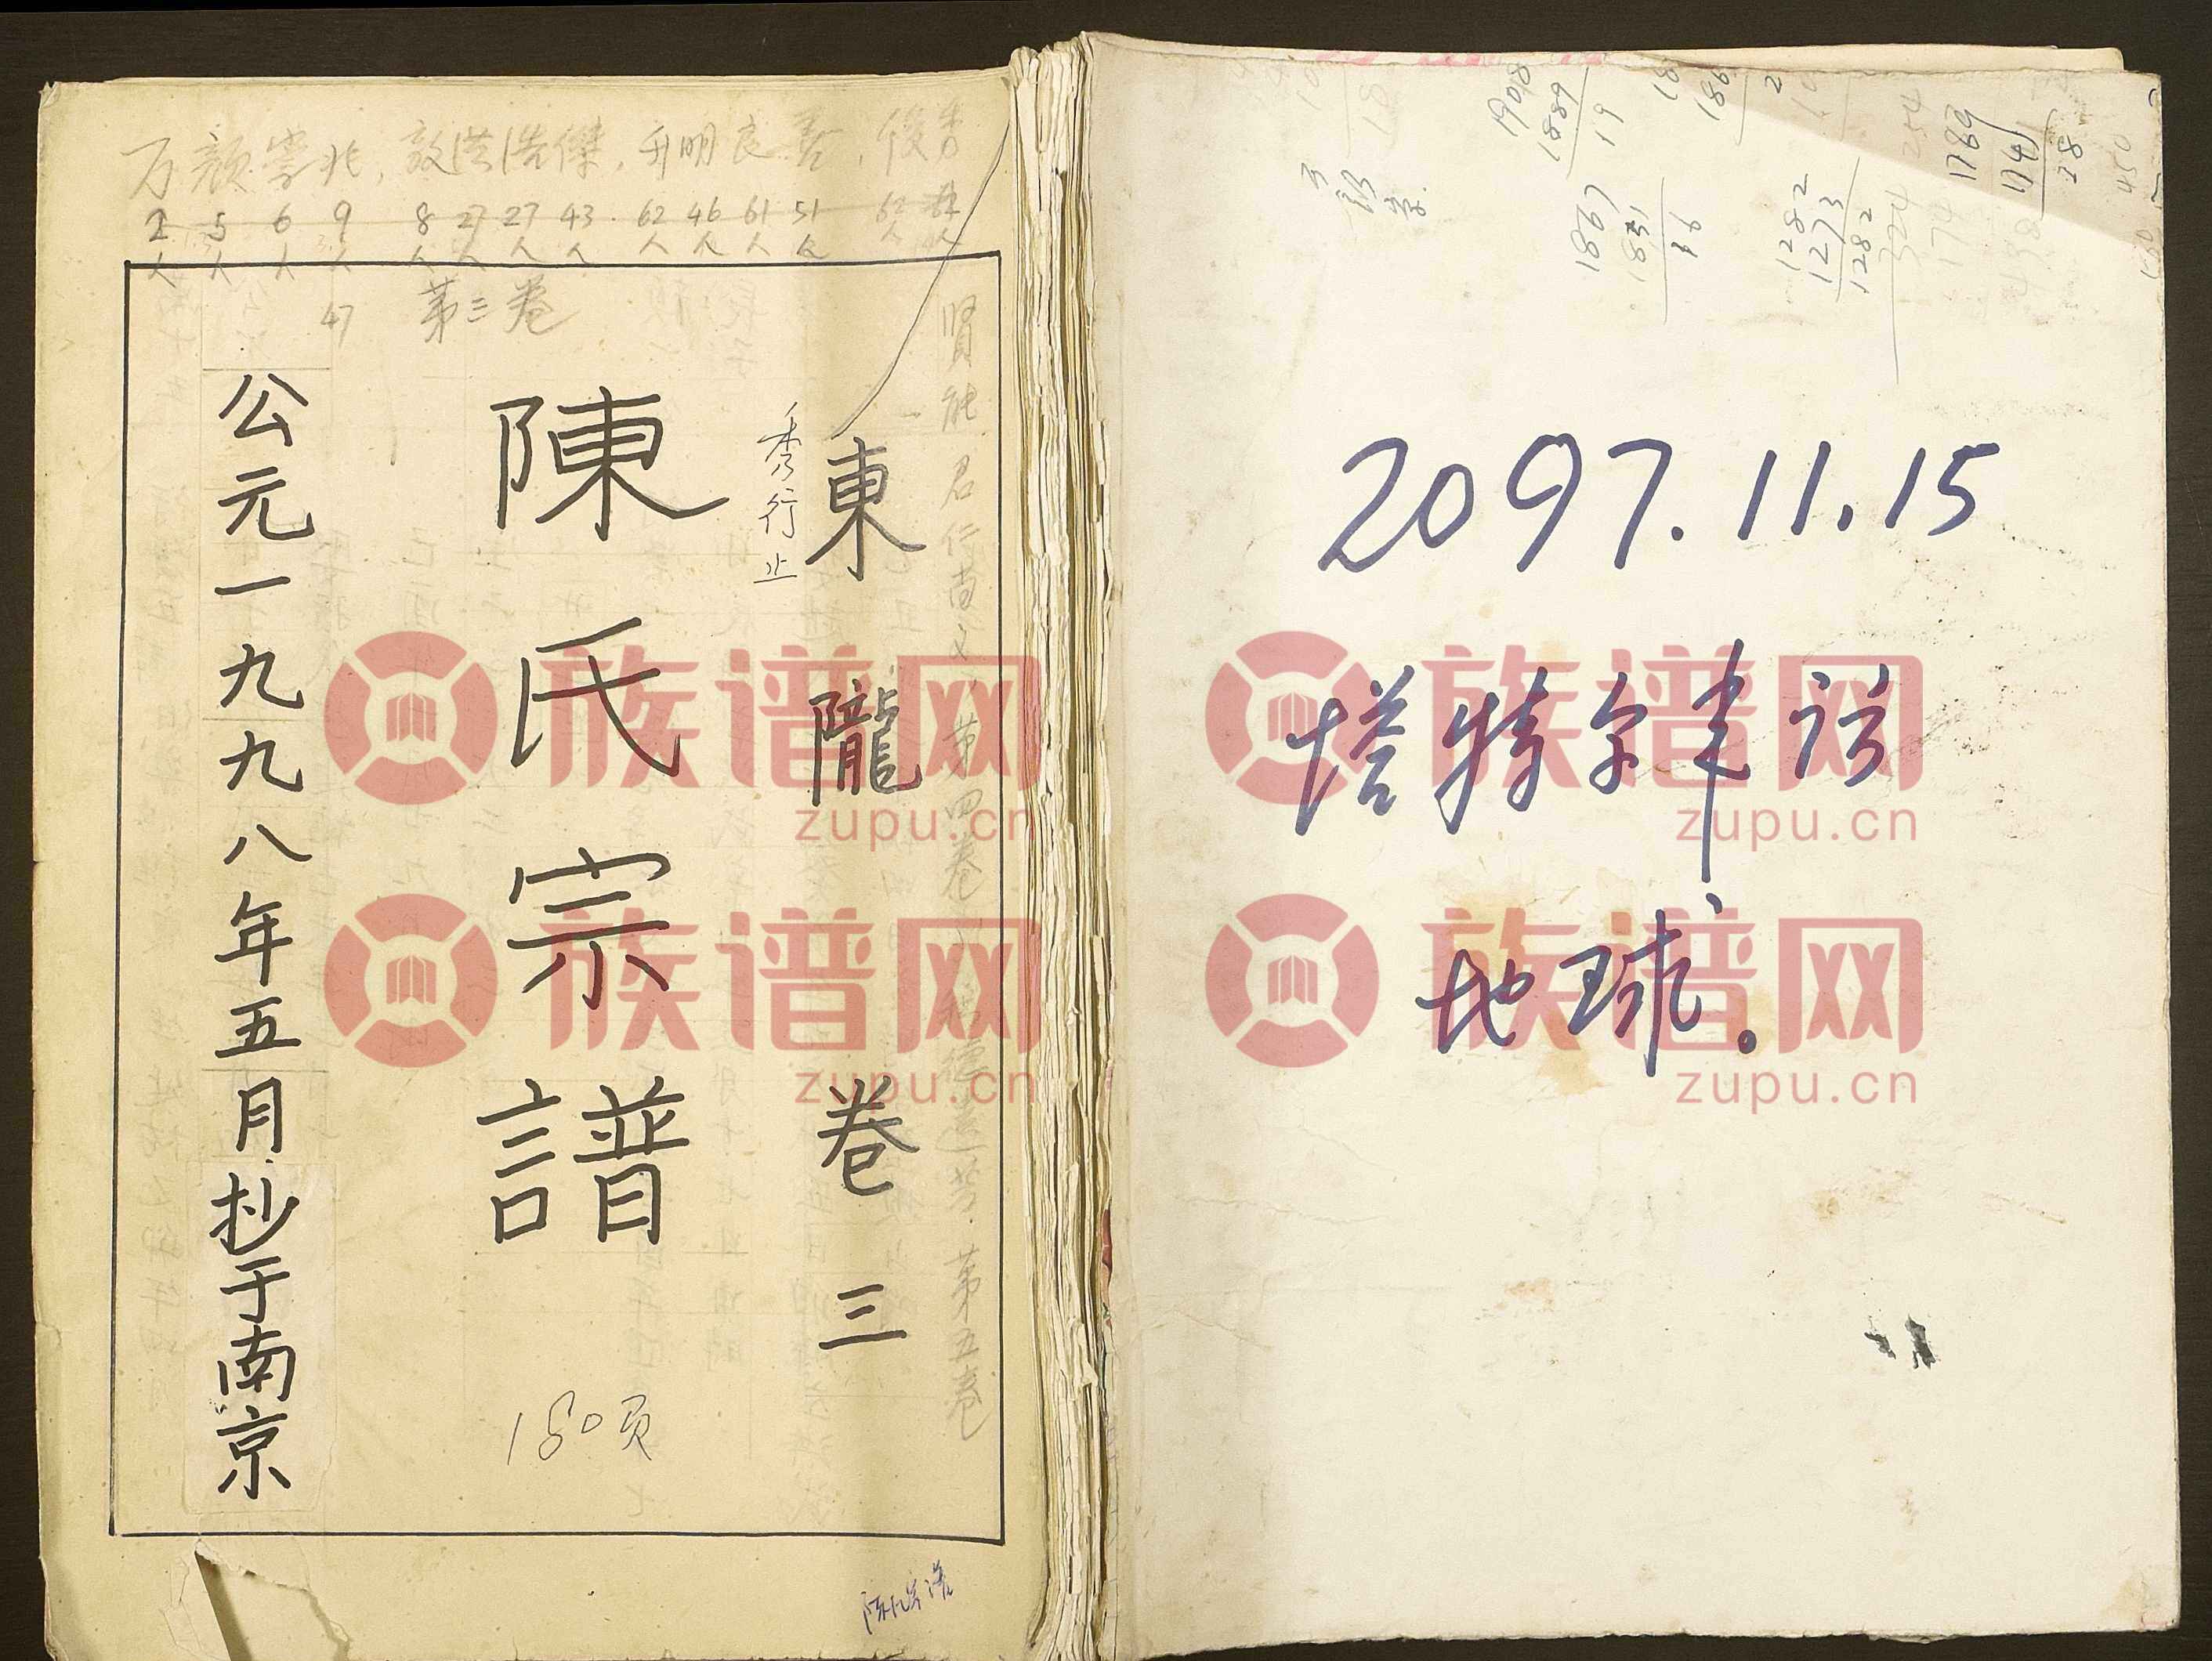 万 顔 崇 兆，敦 洪 浩 傑，升 明 良 善，俊 秀
2人 5人 6人 9人 8人 27人 27人 43人 62人 46人 61人 51人 62人
47
第三卷
賢能
君仁尚义，第四卷
第五卷
東隴 卷三
秀行止
陳氏宗譜
180页
公元一九九八年五月抄于南京
1908
1889
19
1867
1851
16
1282
1273
1282
1769
1741
28
450
324
174
254
2097.11.15
塔特尔建议
地球。
族谱网
zupu.cn
族谱网
zupu.cn
族谱网
zupu.cn
族谱网
zupu.cn